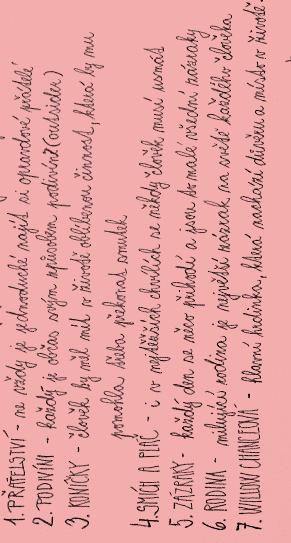 1. PŘÁTELSTVÍ - ne vždy je jednoduché najít si opravdové přátelé
2. PODIVÍNI - každý je občas svým způsobem podivín (outsider)
3. KONÍČKY - člověk by měl mít v životě oblíbenou činnost, která by mu
pomohla třeba překonat smutek
4. SMÍCH A PLÁČ - i v nejtěžších chvílích se někdy člověk musí usmát
5. ZÁZRAKY - každý den se něco přihodí a jsou to malé všední zázraky
6. RODINA - milující rodina je největší zázrak na světě každého člověka
7. WILLOW CHANCEOVÁ - hlavní hrdinka, která nachází důvěru a místo v životě.